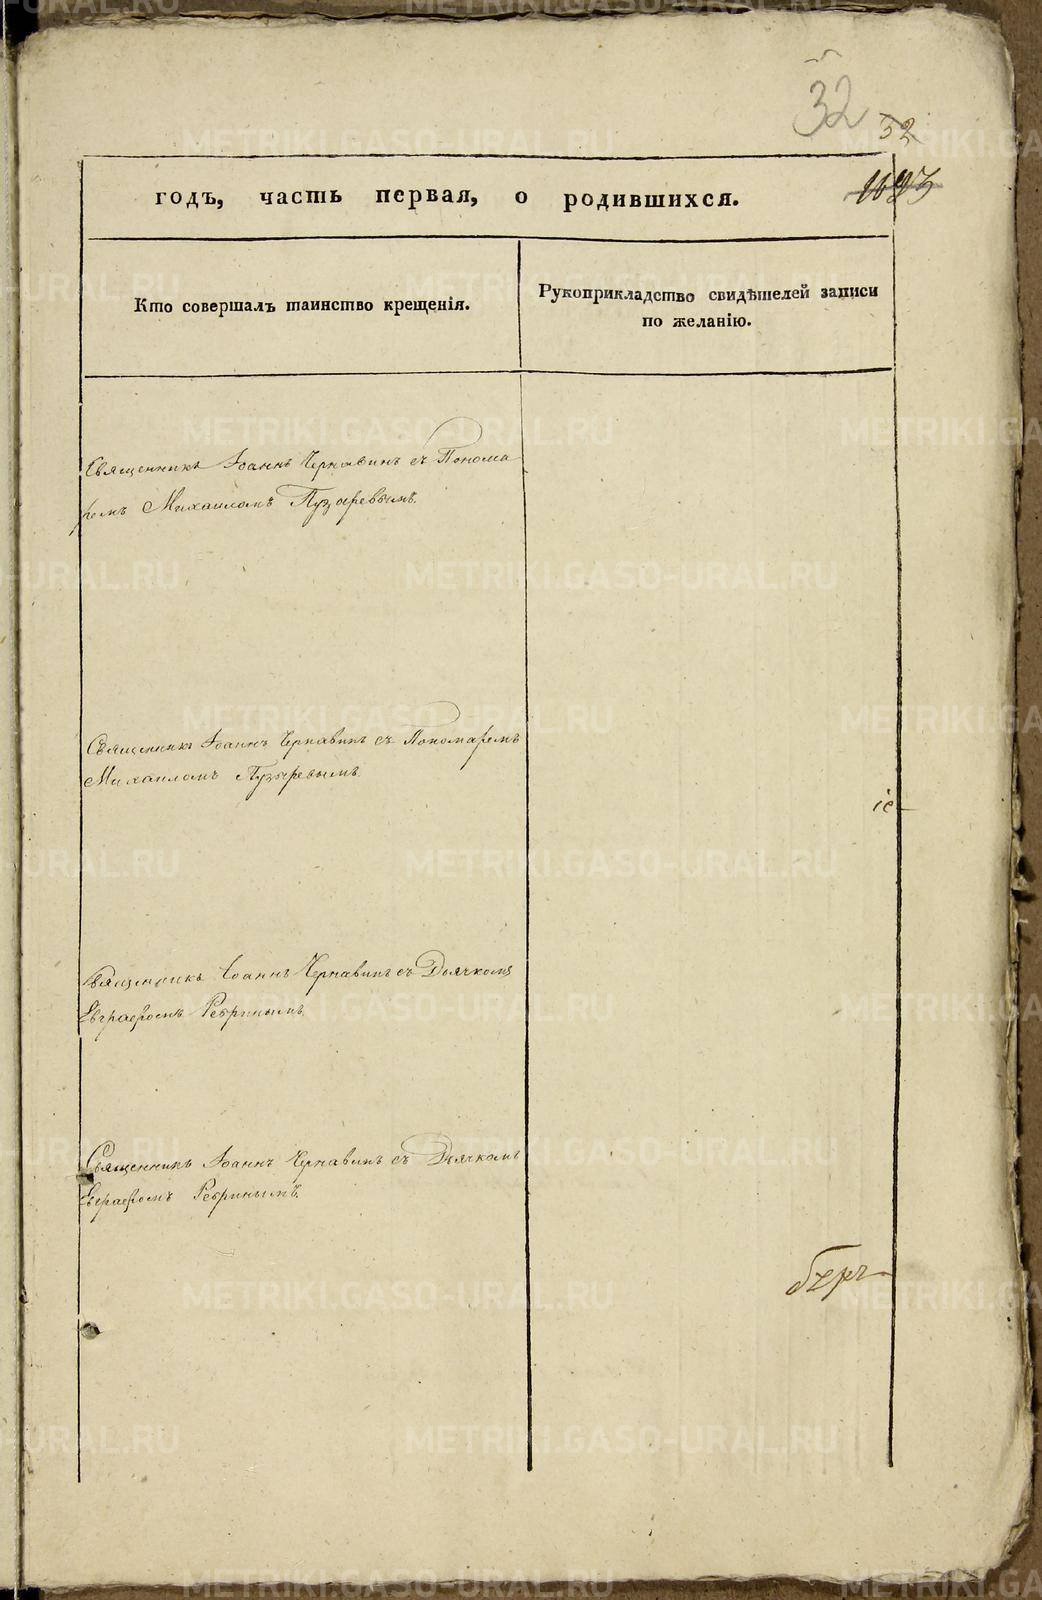 32
32
1693
годъ, часть первая, о родившихся.
Кто совершалъ таинство крещенія.
Рукоприкладство свидѣтелей записи
по желанію.
Священникъ Іоаннъ Чернавинъ съ Понома
ремъ Михаиломъ Пузыревымъ.
Священникъ Іоаннъ Чернавинъ съ Пономаремъ
Михаиломъ Пузыревымъ.
Священникъ Іоаннъ Чернавинъ съ Дьячкомъ
Евграфомъ Ребринымъ.
Священникъ Іоаннъ Чернавинъ съ Дьячкомъ
Евграфомъ Ребринымъ.
METRIKI.GASO-URAL.RU